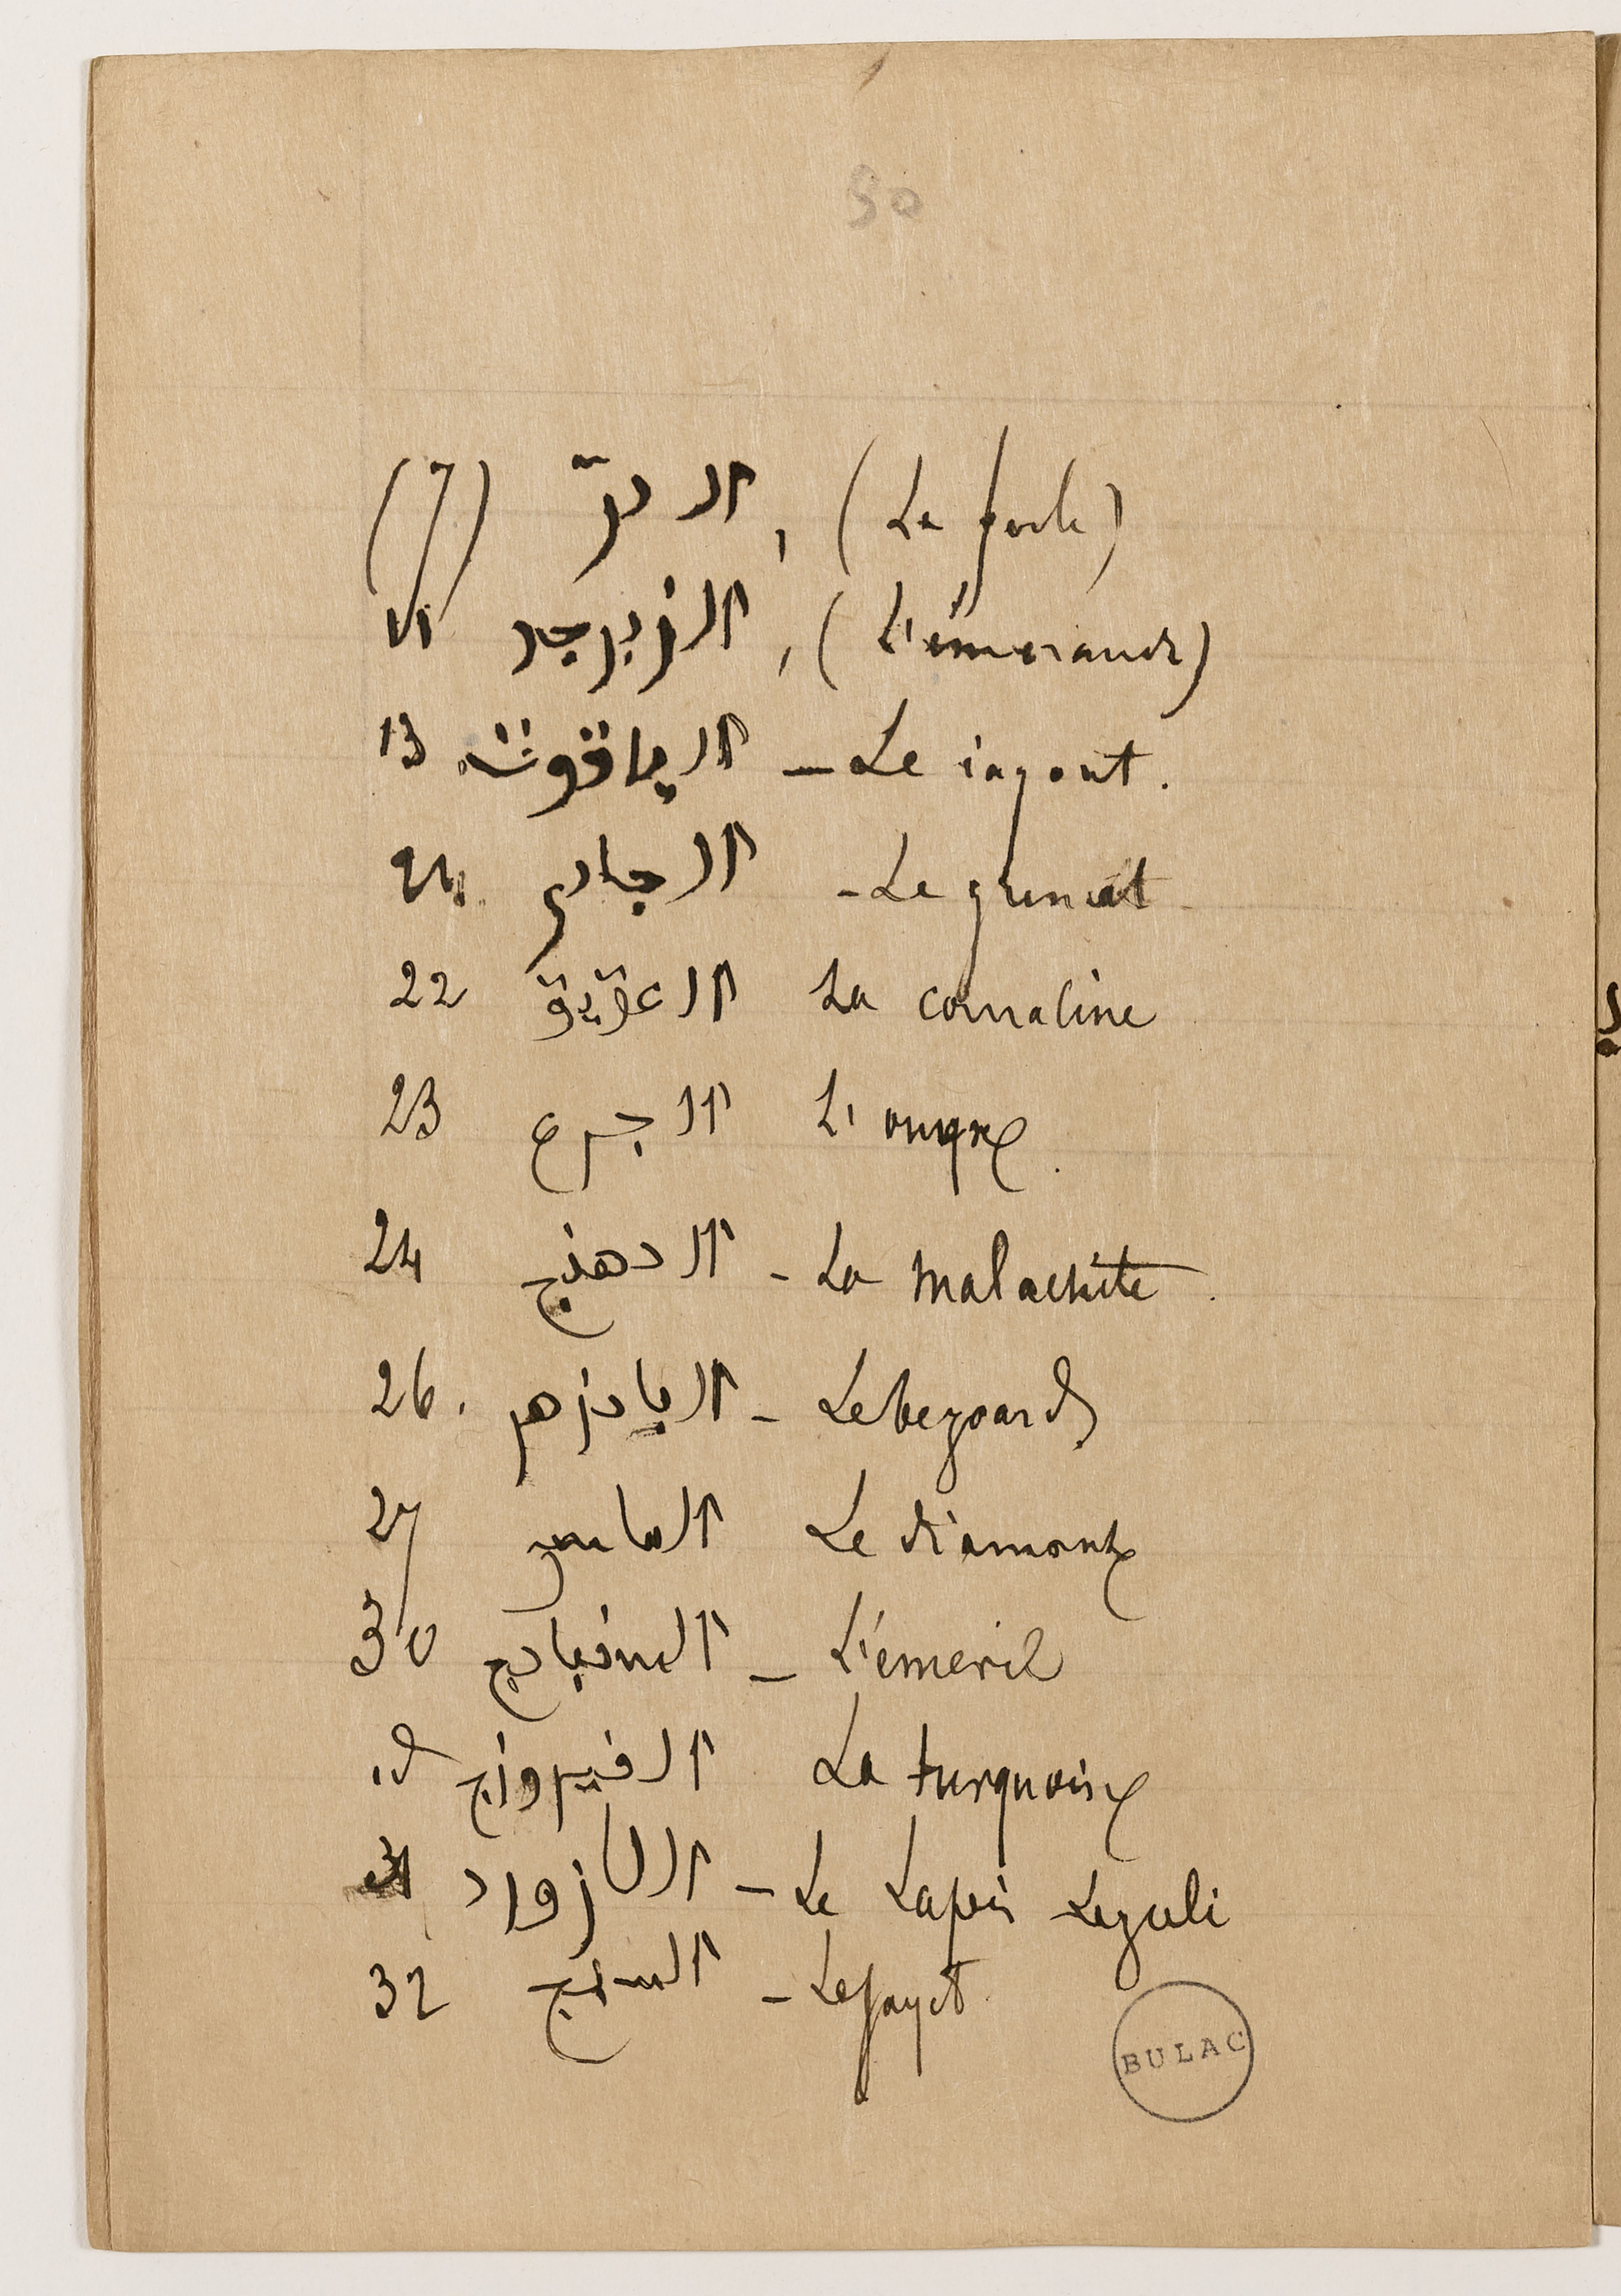 30
(7) الدرّ , (La perle)
11 الزبرجد , (L'émeraude)
13 الياقوت — Le iaqout.
21. الجادى - Le grenat
22 العقيق La cornaline
23 الجزع L'onyx
24 الدهنج - La malachite.
26. البادزهر - Le bezoard
27 الماس Le diamant
30 السنباديج - L'émeril
id. الفيروزج La turquoise
31 اللازورد - Le Lapis Lazuli
32 السبج - Le Jayet
BULAC